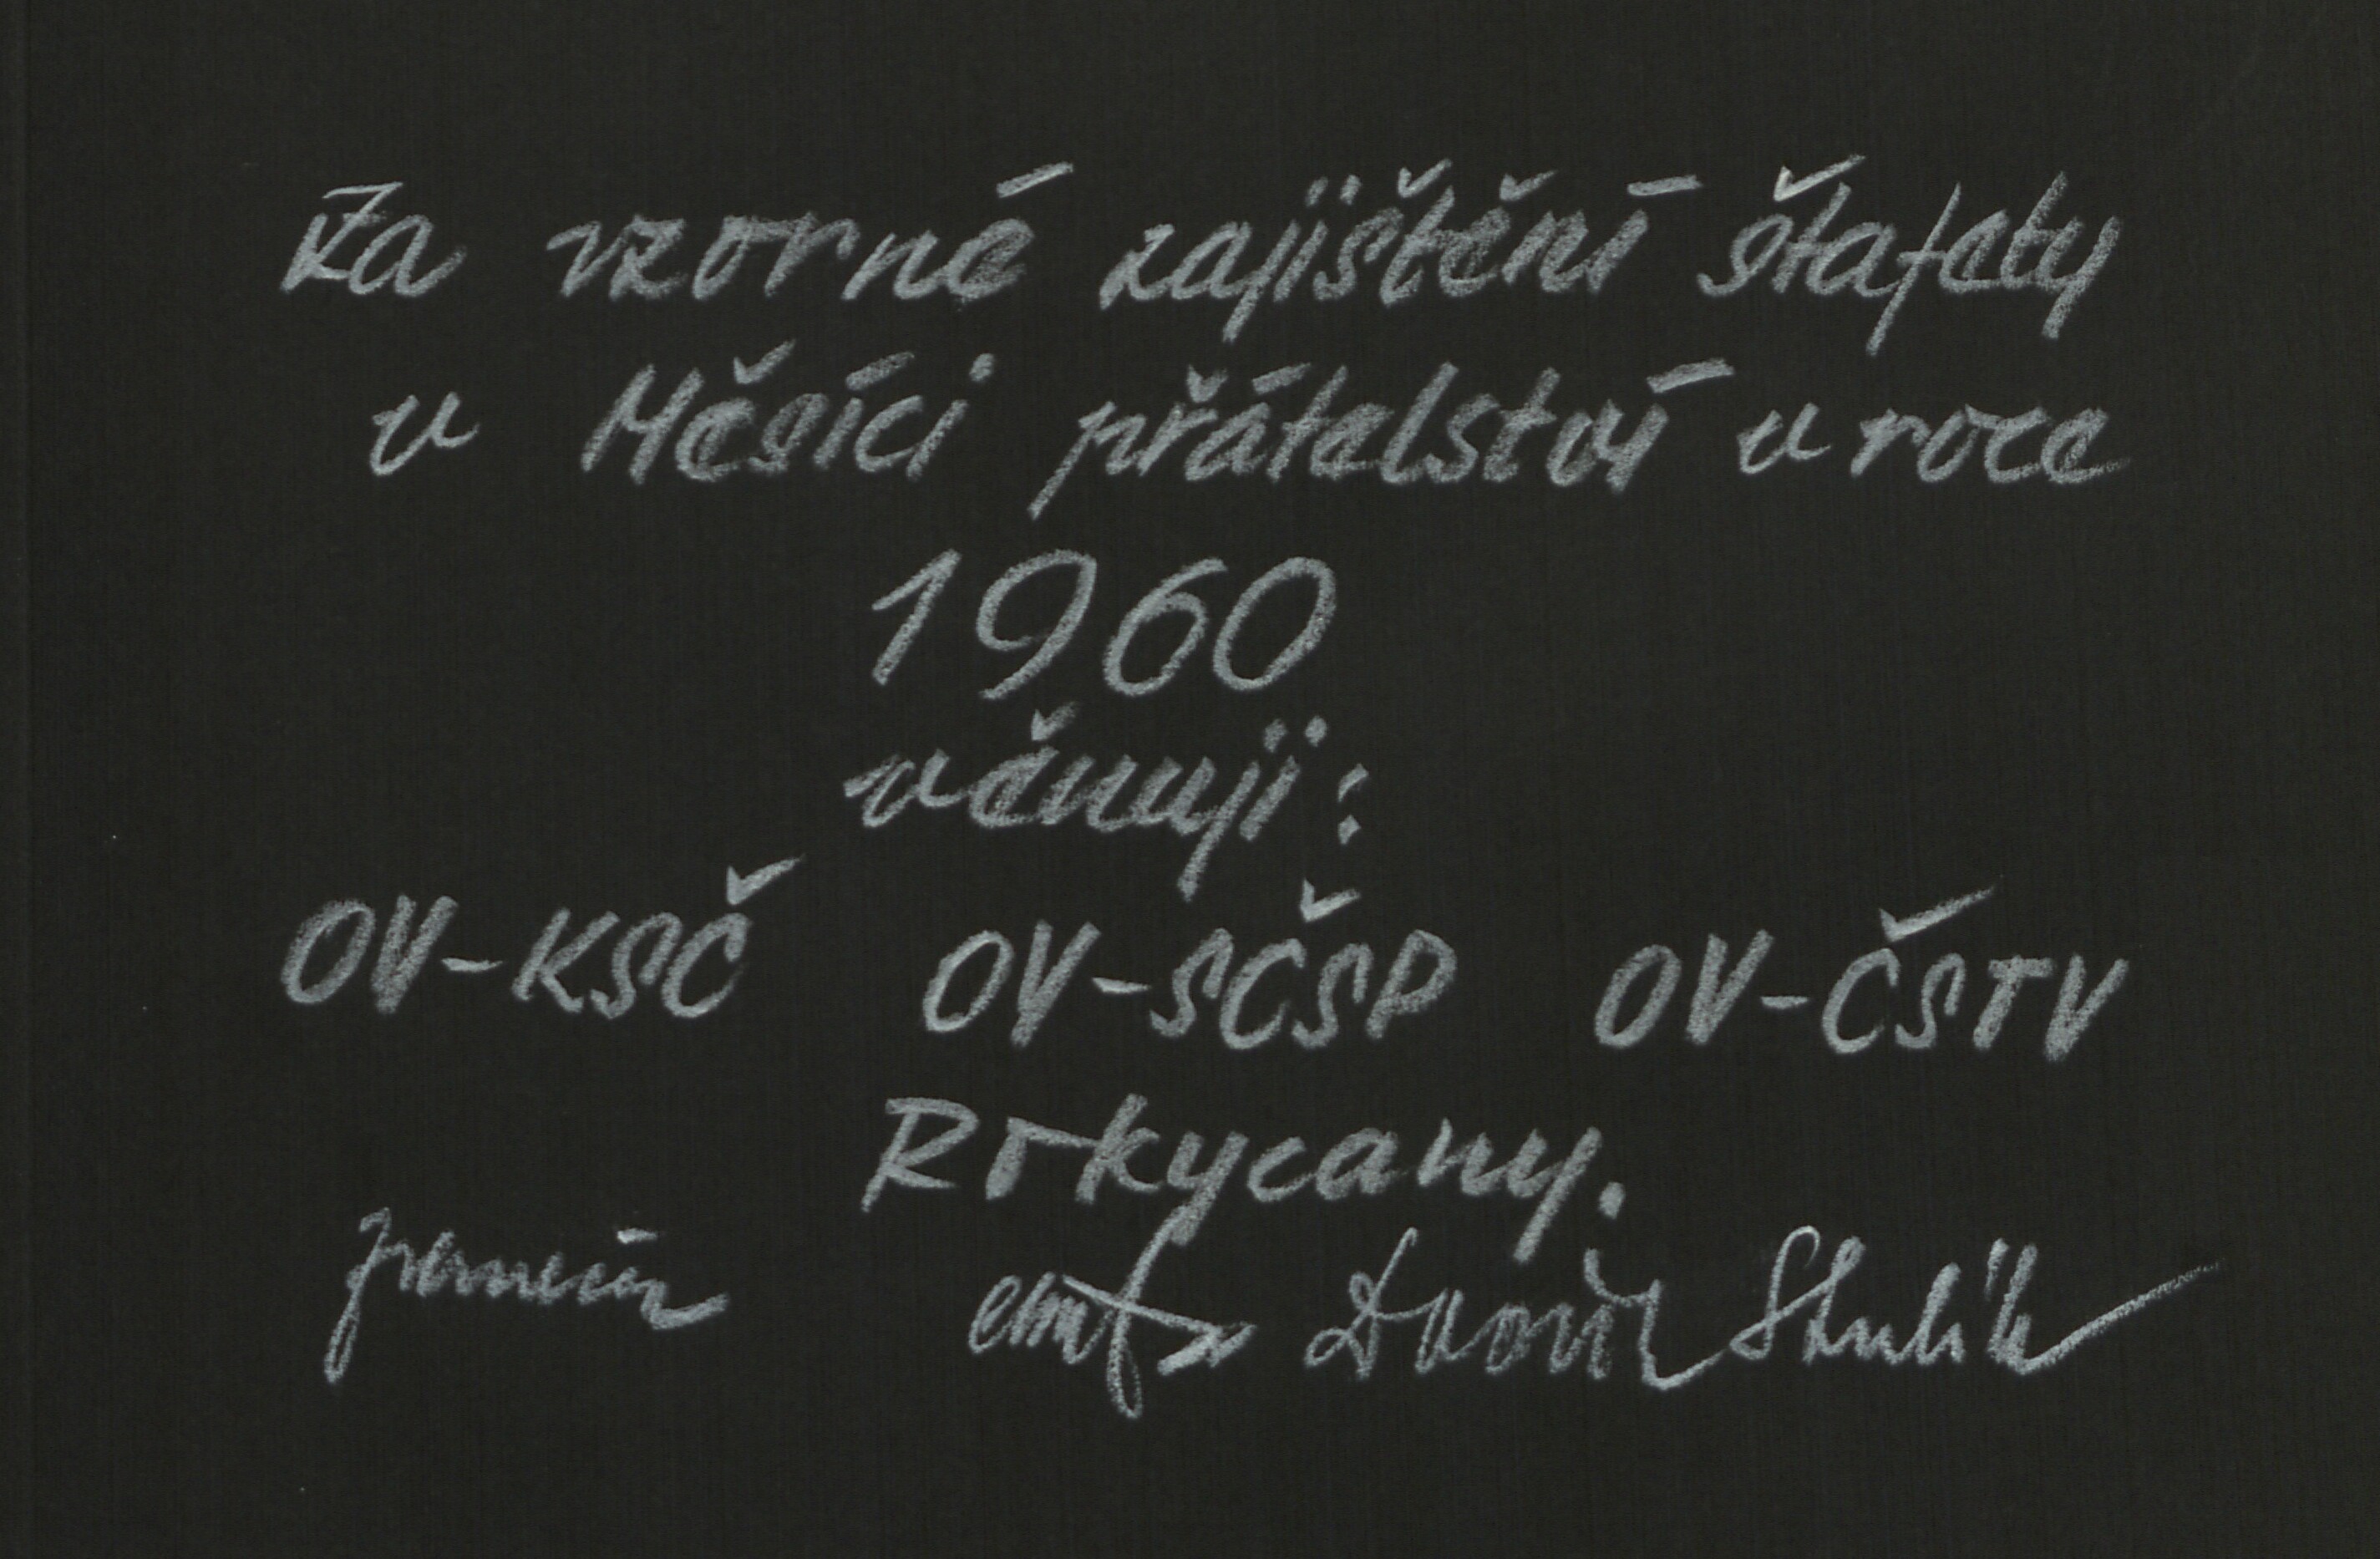 Za vzorné zajištění štafety
v Měsíci přátelství v roce
1960
věnují:
OV-KSČ OV-SČSP OV-ČSTV
Rokycany.